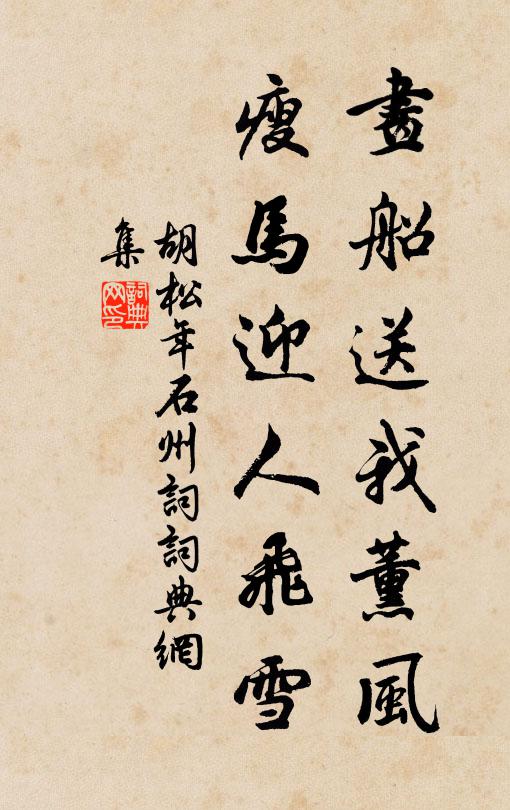 畫船送我薰風
瘦馬迎人飛雪
胡松年石州詞詞典網
集
詞典网印